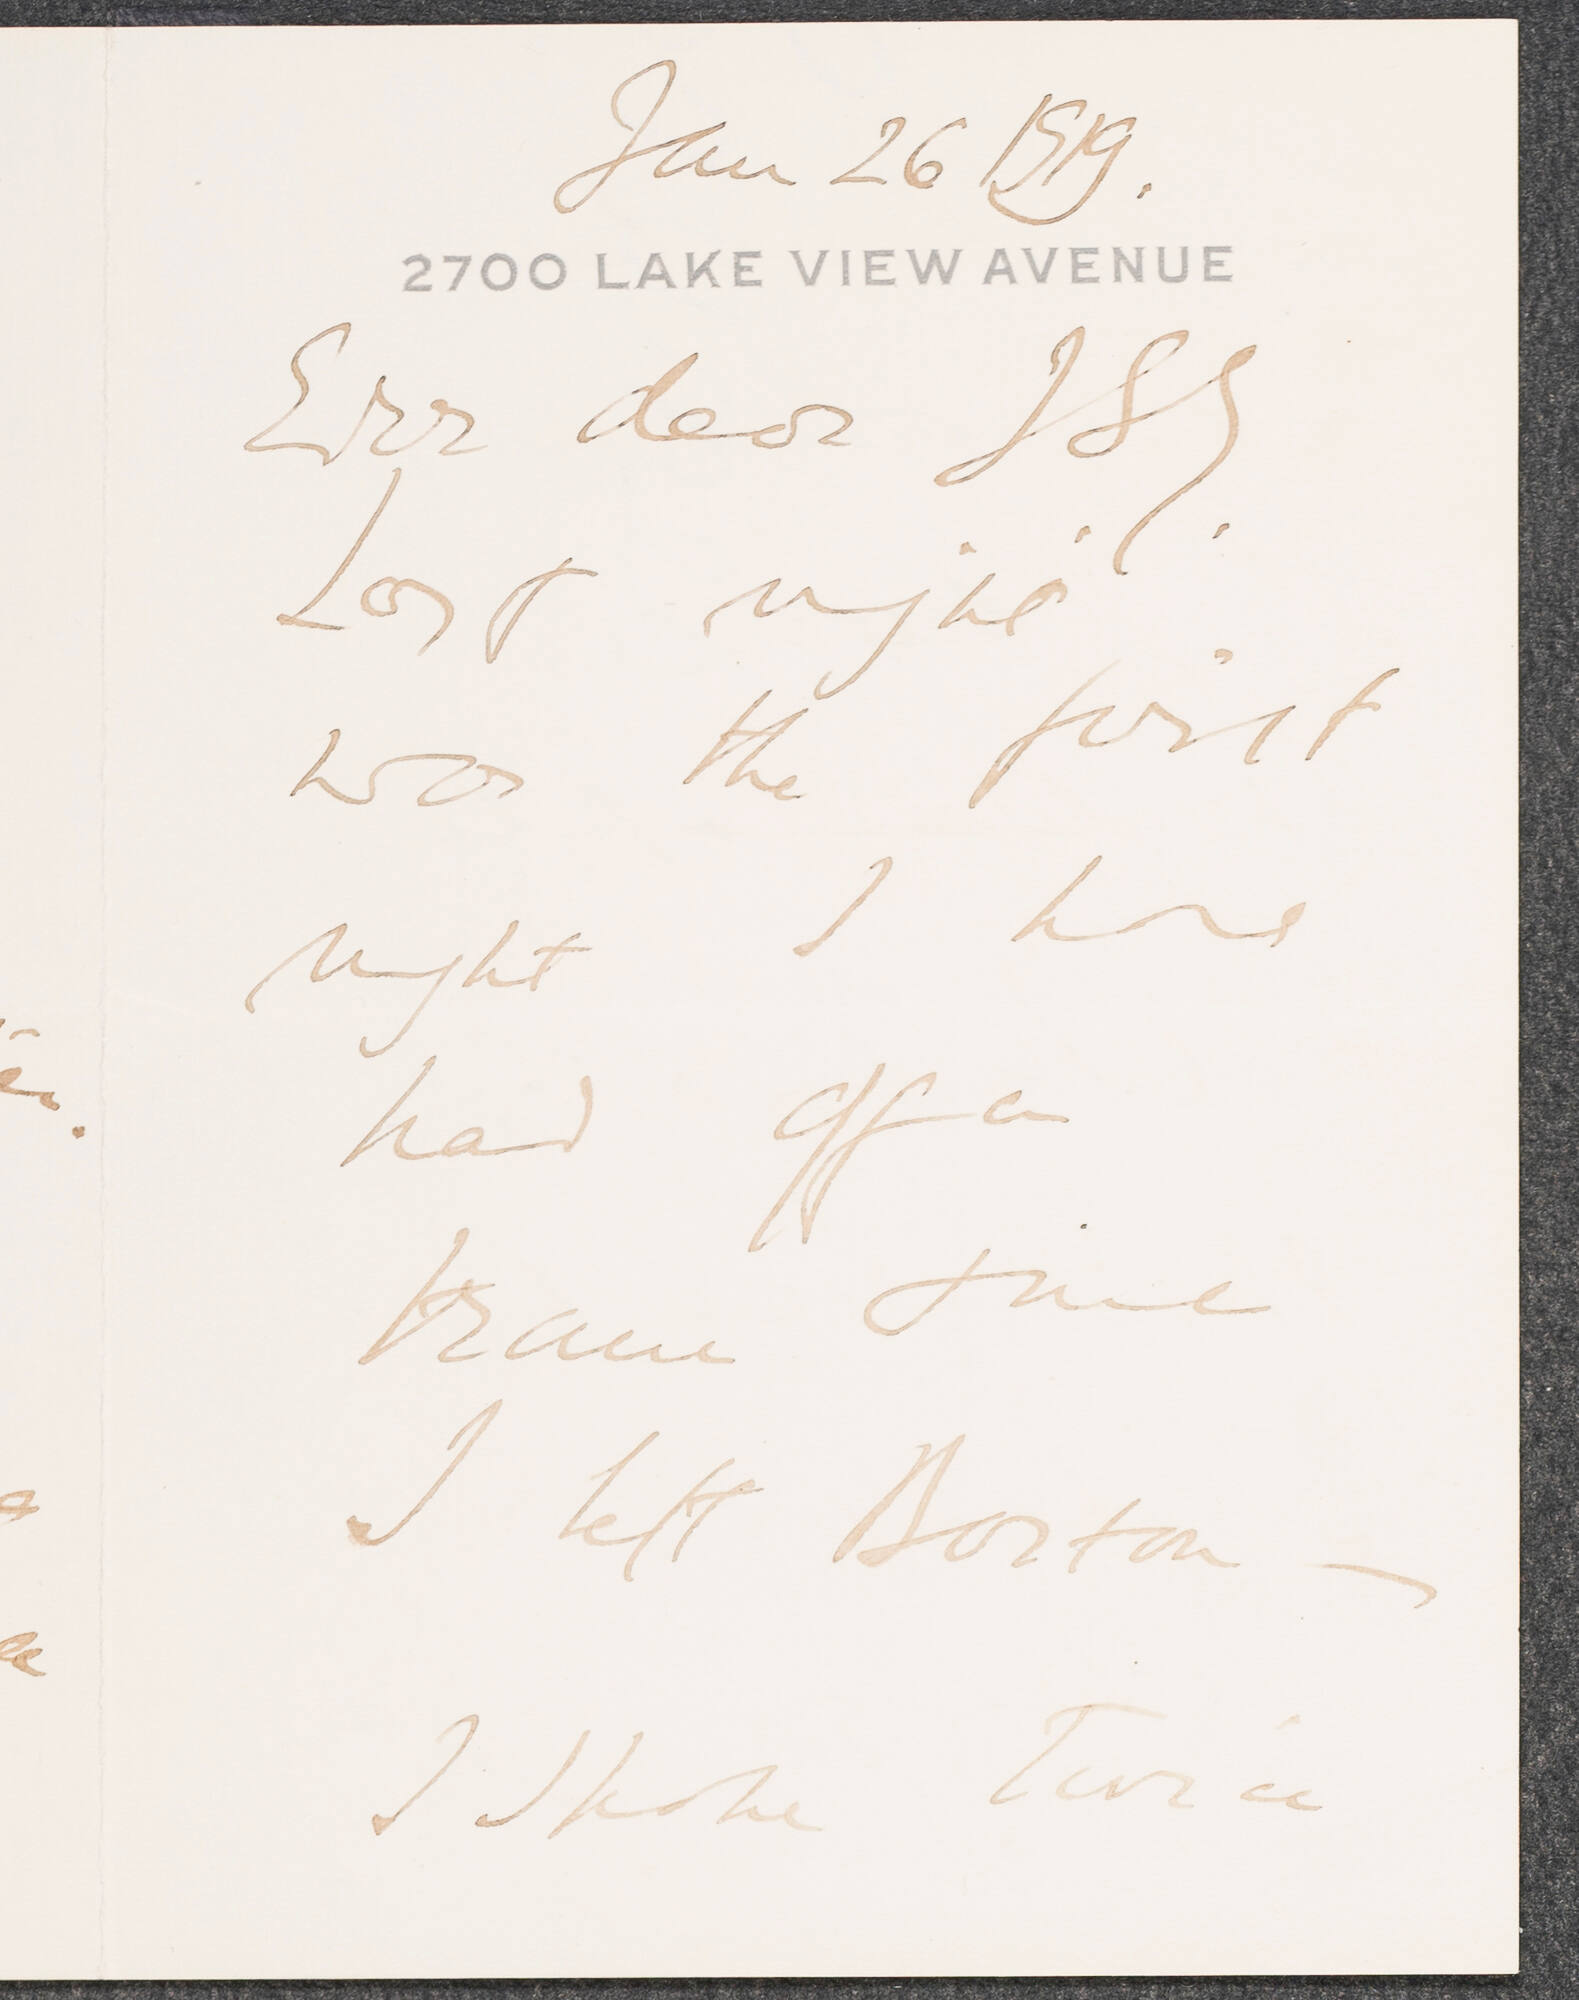 Jan 26 1919.
2700 LAKE VIEW AVENUE
Ever dear I S G.
Last night
was the first
night I have
had off a
train since
I left Boston —
I spoke twice